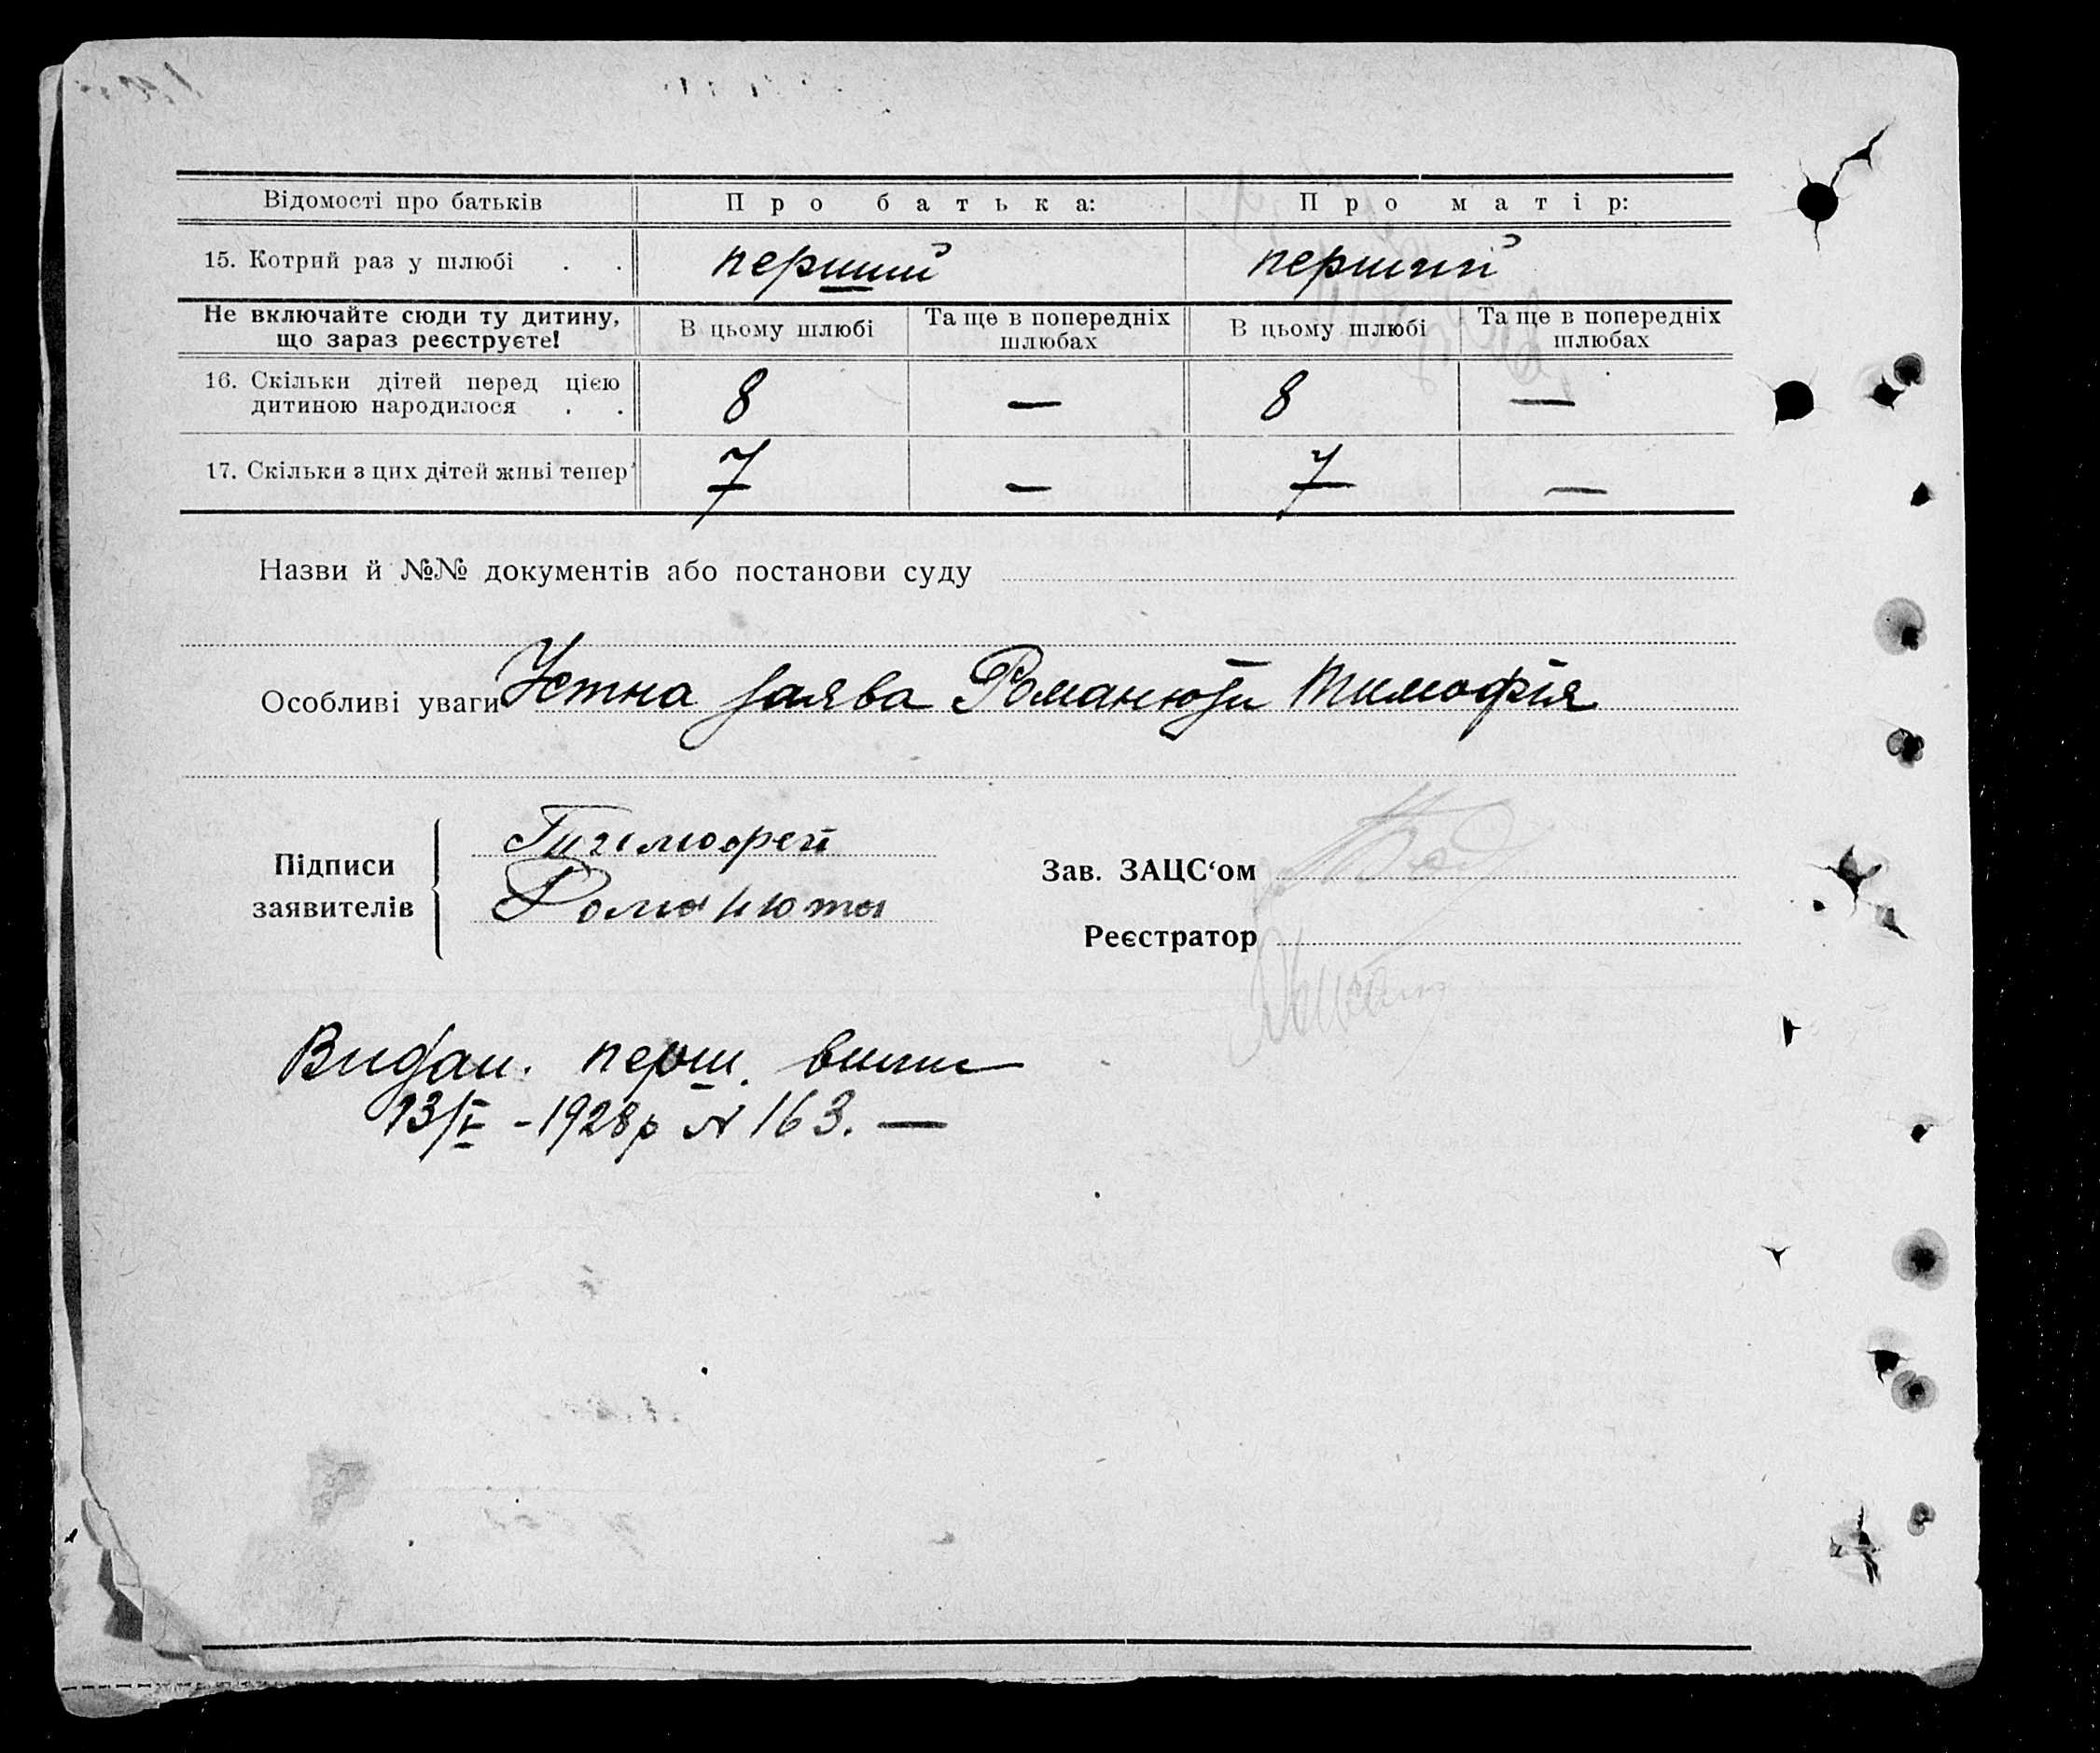 Відомості про батьків Про батька: Про матір:
15. Котрий раз у шлюбі . . перший перший
Не включайте сюди ту дитину, що зараз реєструєте! В цьому шлюбі Та ще в попередніх шлюбах В цьому шлюбі Та ще в попередніх шлюбах
16. Скільки дітей перед цією дитиною народилося . . 8 — 8 —
17. Скільки з цих дітей живі тепер 7 — 7 —
Назви й №№ документів або постанови суду
Особливі уваги Устна заява Романюти Тимофія
Підписи заявителів
Тимофей
Романюта
Зав. ЗАЦС‘ом
Реєстратор
Видан. перш. випис
13/V - 1928р N 163. —